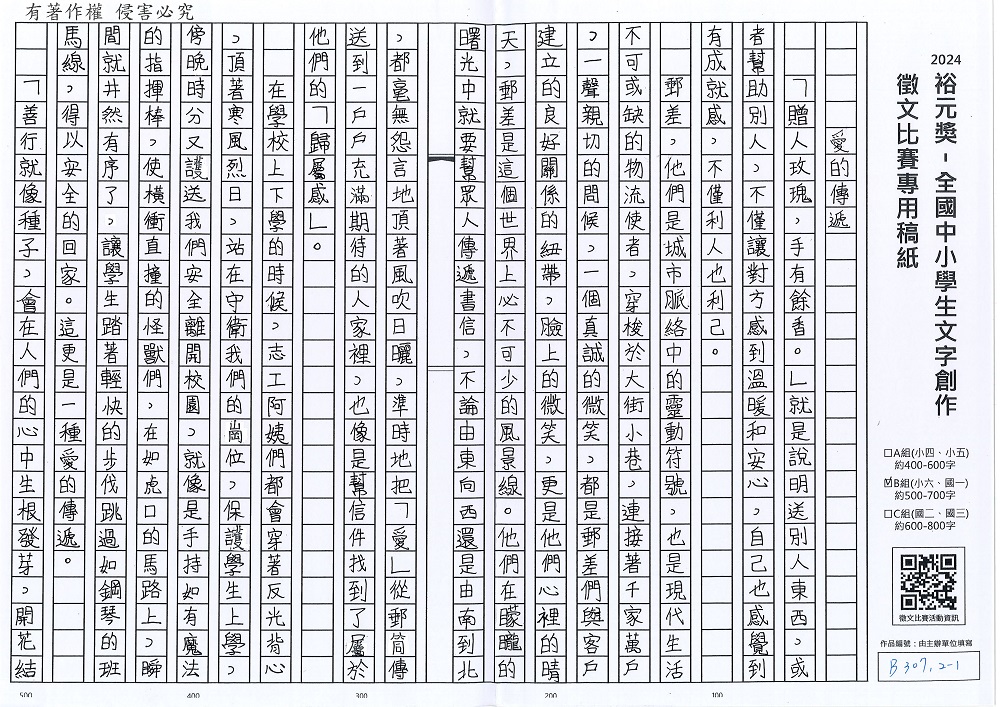 有著作權 侵害必究
2024
裕元獎-全國中小學生文字創作
徵文比賽專用稿紙
□A組(小四、小五)
約400-600字
☑B組(小六、國一)
約500-700字
□C組(國二、國三)
約600-800字
徵文比賽活動資訊
作品編號：由主辦單位填寫
B307.2-1
愛的傳遞
「贈人玫瑰，手有餘香。」就是說明送別人東西，或
者幫助別人，不僅讓對方感到溫暖和安心，自己也感覺到
有成就感，不僅利人也利己。
郵差，他們是城市脈絡中的靈動符號，也是現代生活
不可或缺的物流使者，穿梭於大街小巷，連接著千家萬戶
，一聲親切的問候，一個真誠的微笑，都是郵差們與客戶
建立的良好關係的紐帶，臉上的微笑，更是他們心裡的晴
天，郵差是這個世界上必不可少的風景線。他們在矇矓的
曙光中就要幫眾人傳遞書信，不論由東向西還是由南到北
，都毫無怨言地頂著風吹日曬，準時地把「愛」從郵筒傳
送到一戶戶充滿期待的人家裡，也像是幫信件找到了屬於
他們的「歸屬感」。
在學校上下學的時候，志工阿姨們都會穿著反光背心
，頂著寒風烈日，站在守衛我們的崗位，保護學生上學，
傍晚時分又護送我們安全離開校園，就像是手持如有魔法
的指揮棒，使橫衝直撞的怪獸們，在如虎口的馬路上，瞬
間就井然有序了，讓學生踏著輕快的步伐跳過如鋼琴的班
馬線，得以安全的回家。這更是一種愛的傳遞。
「善行就像種子，會在人們的心中生根發芽，開花結
100
200
300
400
500